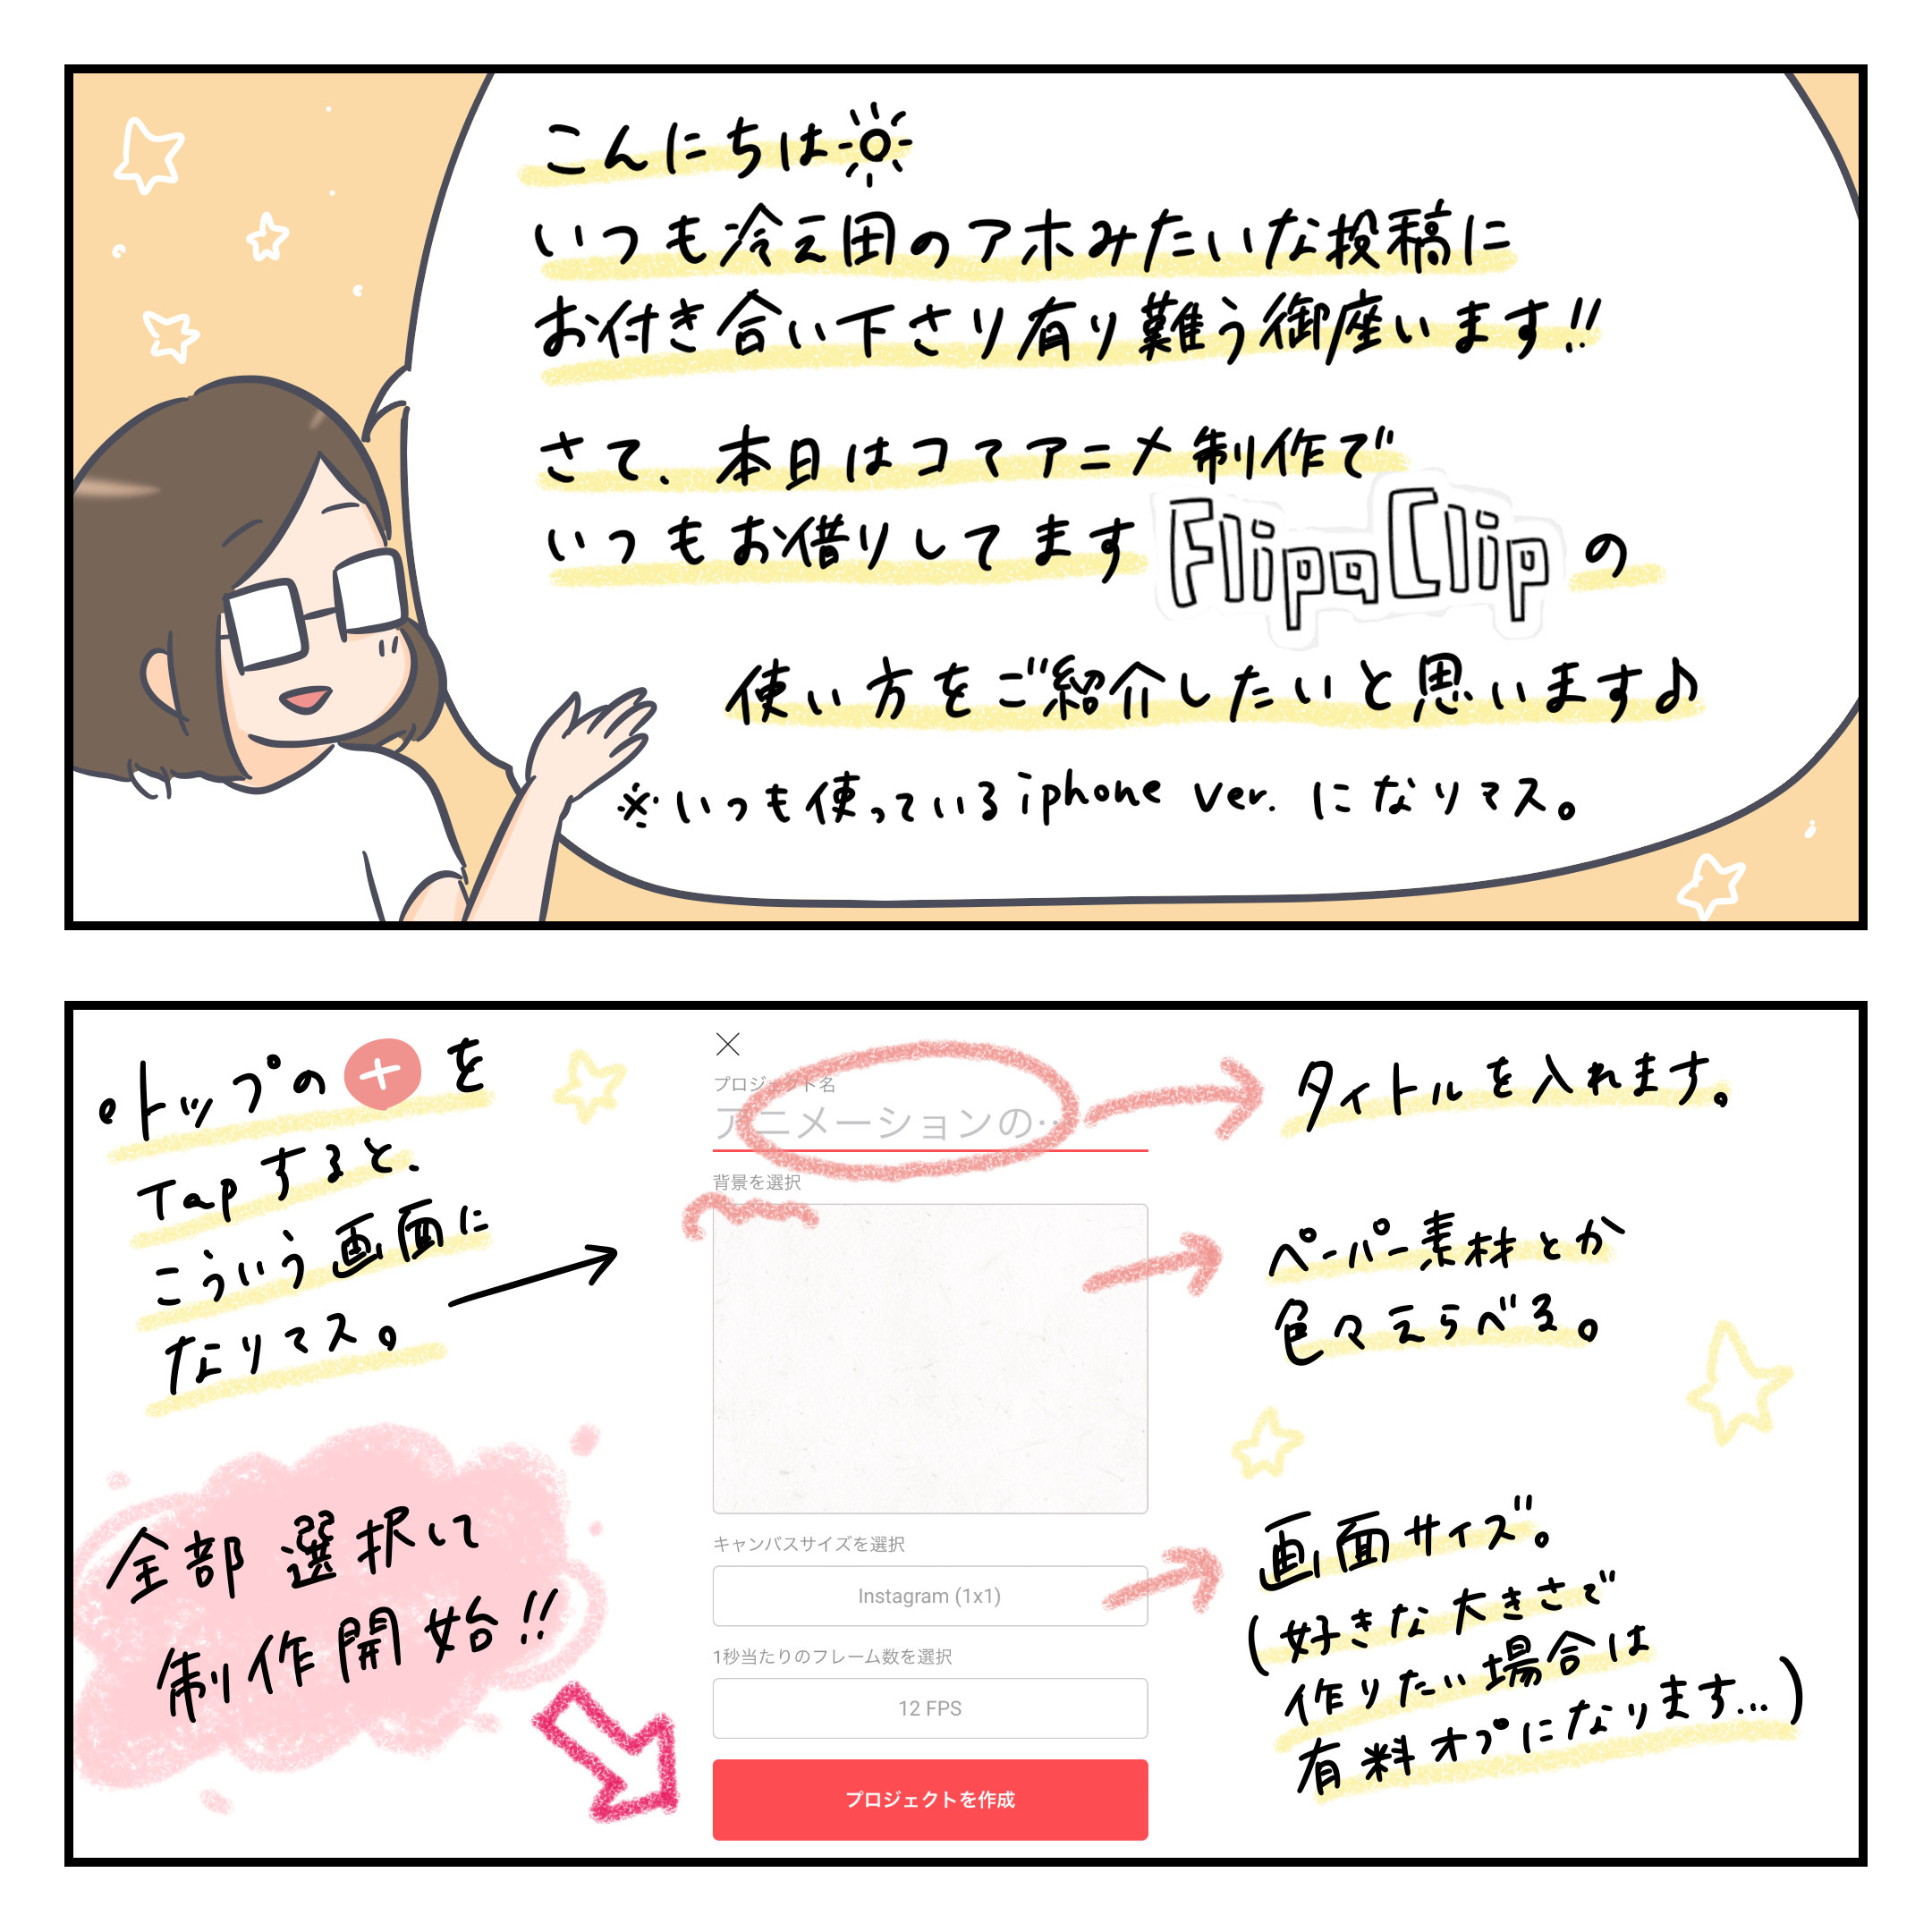 こんにちは
いつも冷え田のアホみたいな投稿に
お付き合い下さり有り難う御座います!!
さて、本日はコマアニメ制作で
いつもお借りしてます FlipaClip の
使い方をご紹介したいと思います♪
※いつも使っているiphone ver. になりマス。
・トップの+を
Tapすると、
こういう画面に
なりマス。
全部選択して
制作開始!!
プロジェクト名
アニメーションの…
背景を選択
キャンバスサイズを選択
Instagram (1x1)
1秒当たりのフレーム数を選択
12 FPS
プロジェクトを作成
タイトルを入れます。
ペーパー素材とか
色々えらべる。
画面サイズ。
(好きな大きさで
作りたい場合は
有料オプになります…)